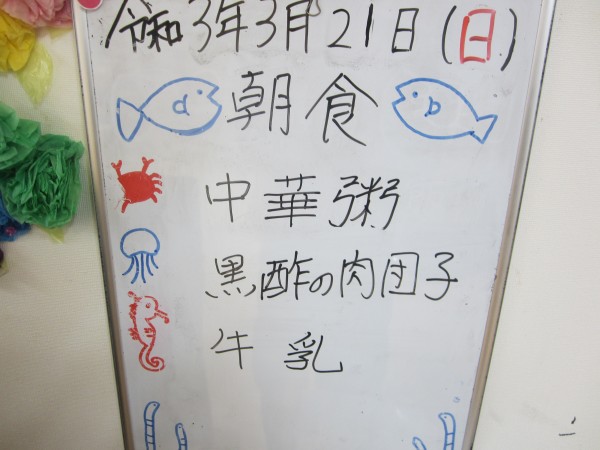 令和3年3月21日(日)
朝食
中華粥
黒酢の肉団子
牛乳